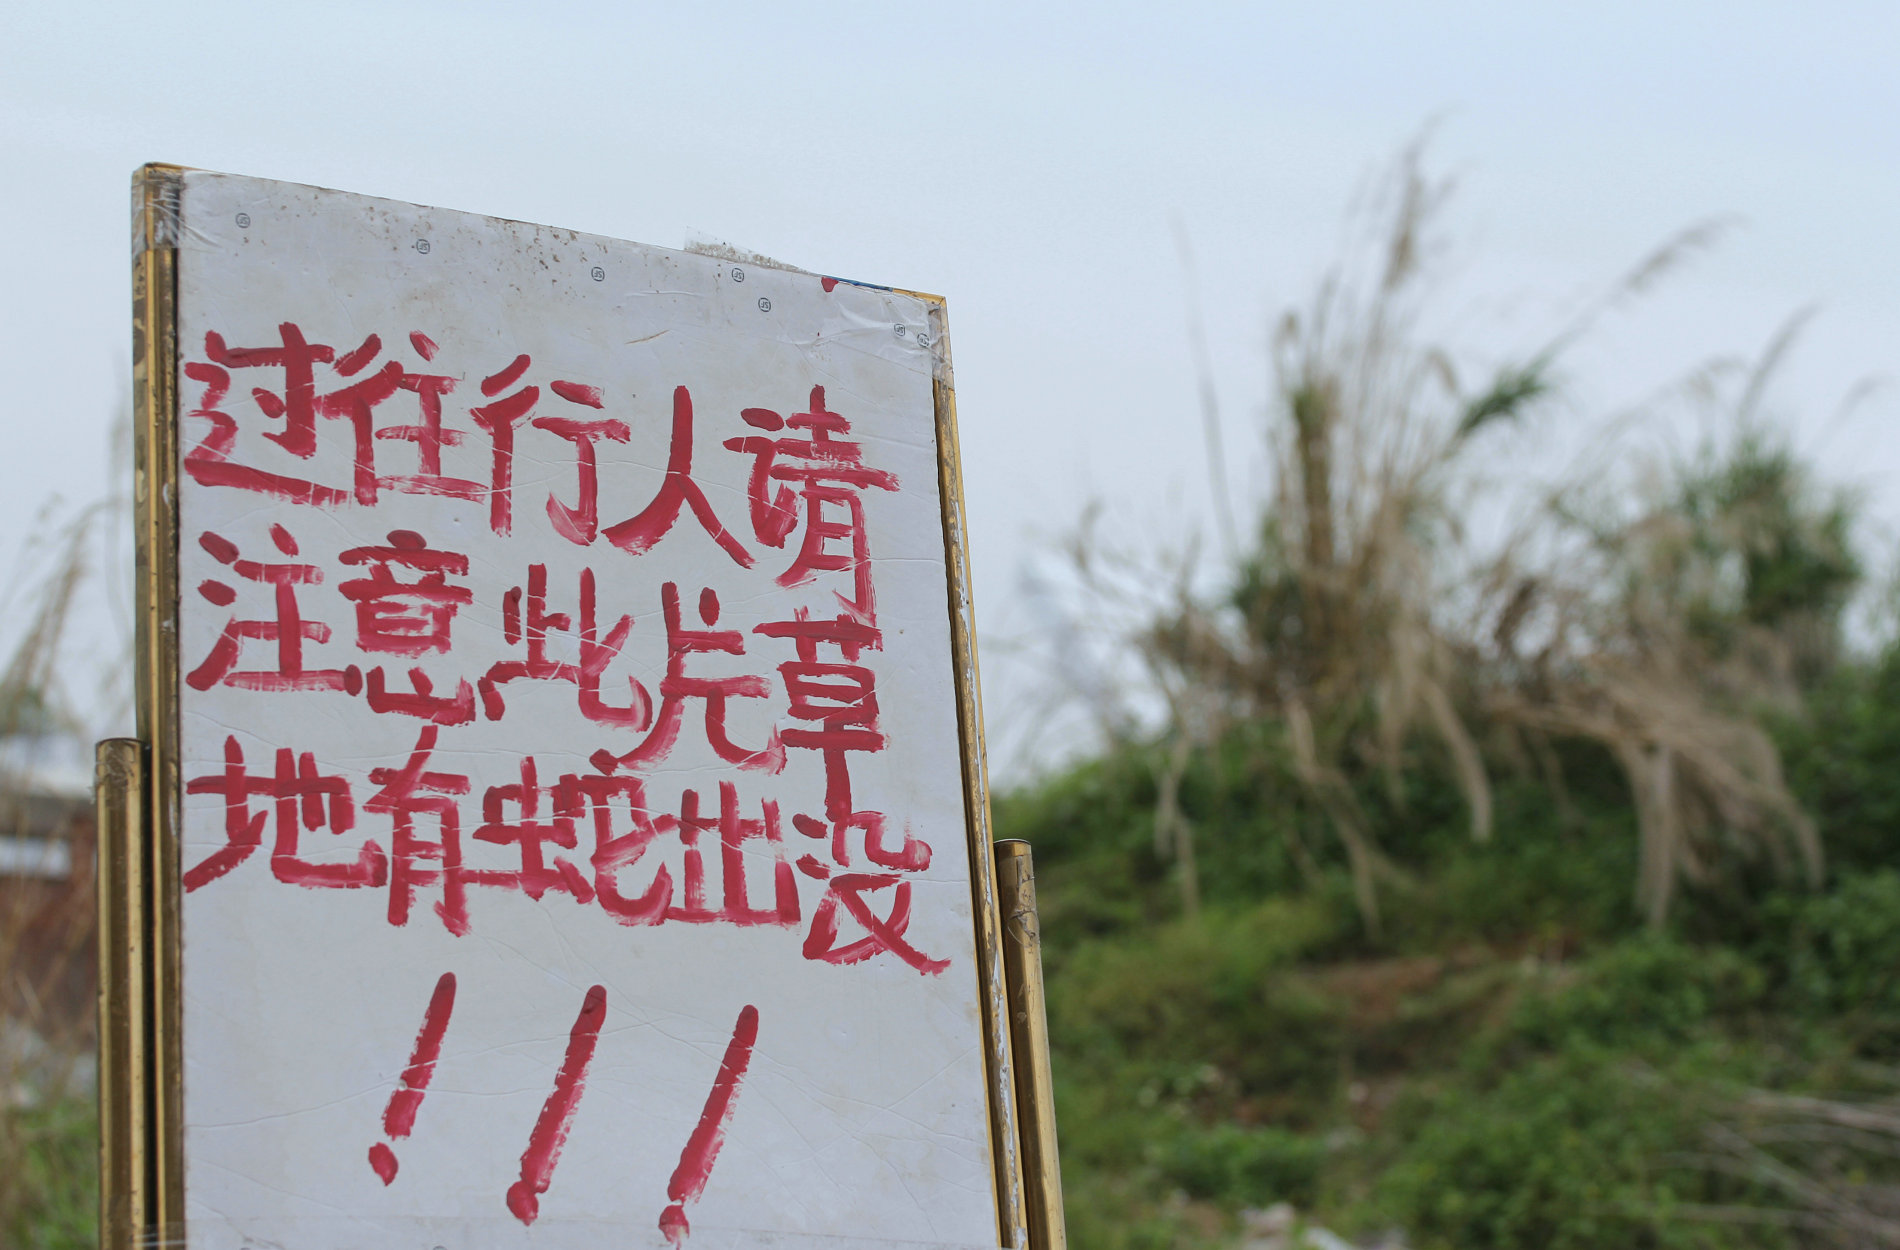 过往行人请
注意此片草
地有蛇出没
!!!